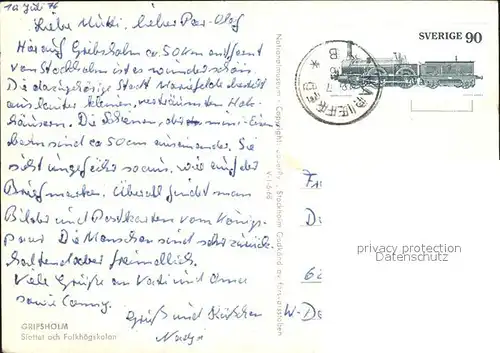 10 Juli 76
Liebe Mutti, lieber Per-Olof
Hier auf Gripsholm ca 50 km entfernt
von Stockholm ist es wunderschön.
Die dazugehörige Stadt Mariefred besteht
aus lauter kleinen, verträumten Holz-
häusern. Die Schienen, der mini-Eisen
bahn sind ca 50 cm auseinander. Sie
sieht ungefähr so aus, wie auf der
Briefmarke. Überall findet man
Bilder und Postkarten vom Königs-
paar. Die Menschen sind sehr zurück-
haltend aber freundlich.
Viele Grüße an Vati und Oma
sowie Conny.
Gruß und Küßchen
Nadja
GRIPSHOLM
Slottet och Folkhögskolan
Nationalmuseum - Copyright
Stockholm
SVERIGE 90
Fr
D
6
W-D
privacy protection
Datenschutz